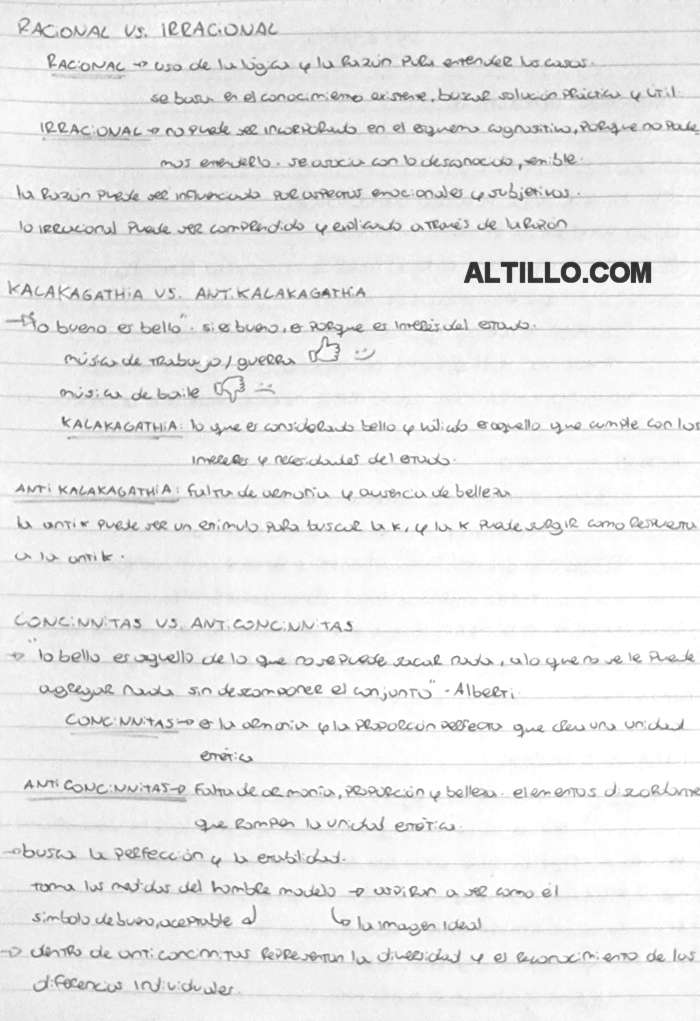 RACIONAL VS. IRRACIONAL
RACIONAL → uso de la lógica y la razón para entender las cosas.
se basa en el conocimiento existene, buscar solución práctica y útil.
IRRACIONAL → no puede ser incorporado en el esquema cognositivo, porque no pode
mos entenderlo. se asocia con lo desconocido, terrible.
la razón puede ser influenciada por aspectos emocionales y subjetivos.
lo irracional puede ser comprendido y explicado a través de la razón
ALTILLO.COM
KALAKAGATHIA VS. ANTIKALAKAGATHIA
→ "lo bueno es bello". si es bueno, es porque es interés del estado.
música de trabajo/guerra 👍 :)
música de baile 👎 :(
KALAKAGATHIA: lo que es considerado bello y válido es aquello que cumple con los
intereses y necesidades del estado.
ANTIKALAKAGATHIA: falta de armonía y ausencia de belleza
la antik puede ser un estímulo para buscar la K, y la K puede surgir como respuesta
a la antik.
CONCINNITAS VS. ANTICONCINNITAS
→ "lo bello es aquello de lo que no se puede sacar nada, a lo que no se le puede
agregar nada sin descomponer el conjunto" - Alberti.
CONCINNITAS → es la armonía y la proporción perfecta que crea una unidad
estética
ANTICONCINNITAS → falta de armonía, proporción y belleza. elementos discordante
que rompen la unidad estética.
→ busca la perfección y la estabilidad.
toma las medidas del hombre modelo → aspiran a ser como él
símbolo de bueno, aceptable ↲ ↳ la imagen ideal
→ dentro de anticoncinnitas representan la diversidad y el reconocimiento de las
diferencias individuales.